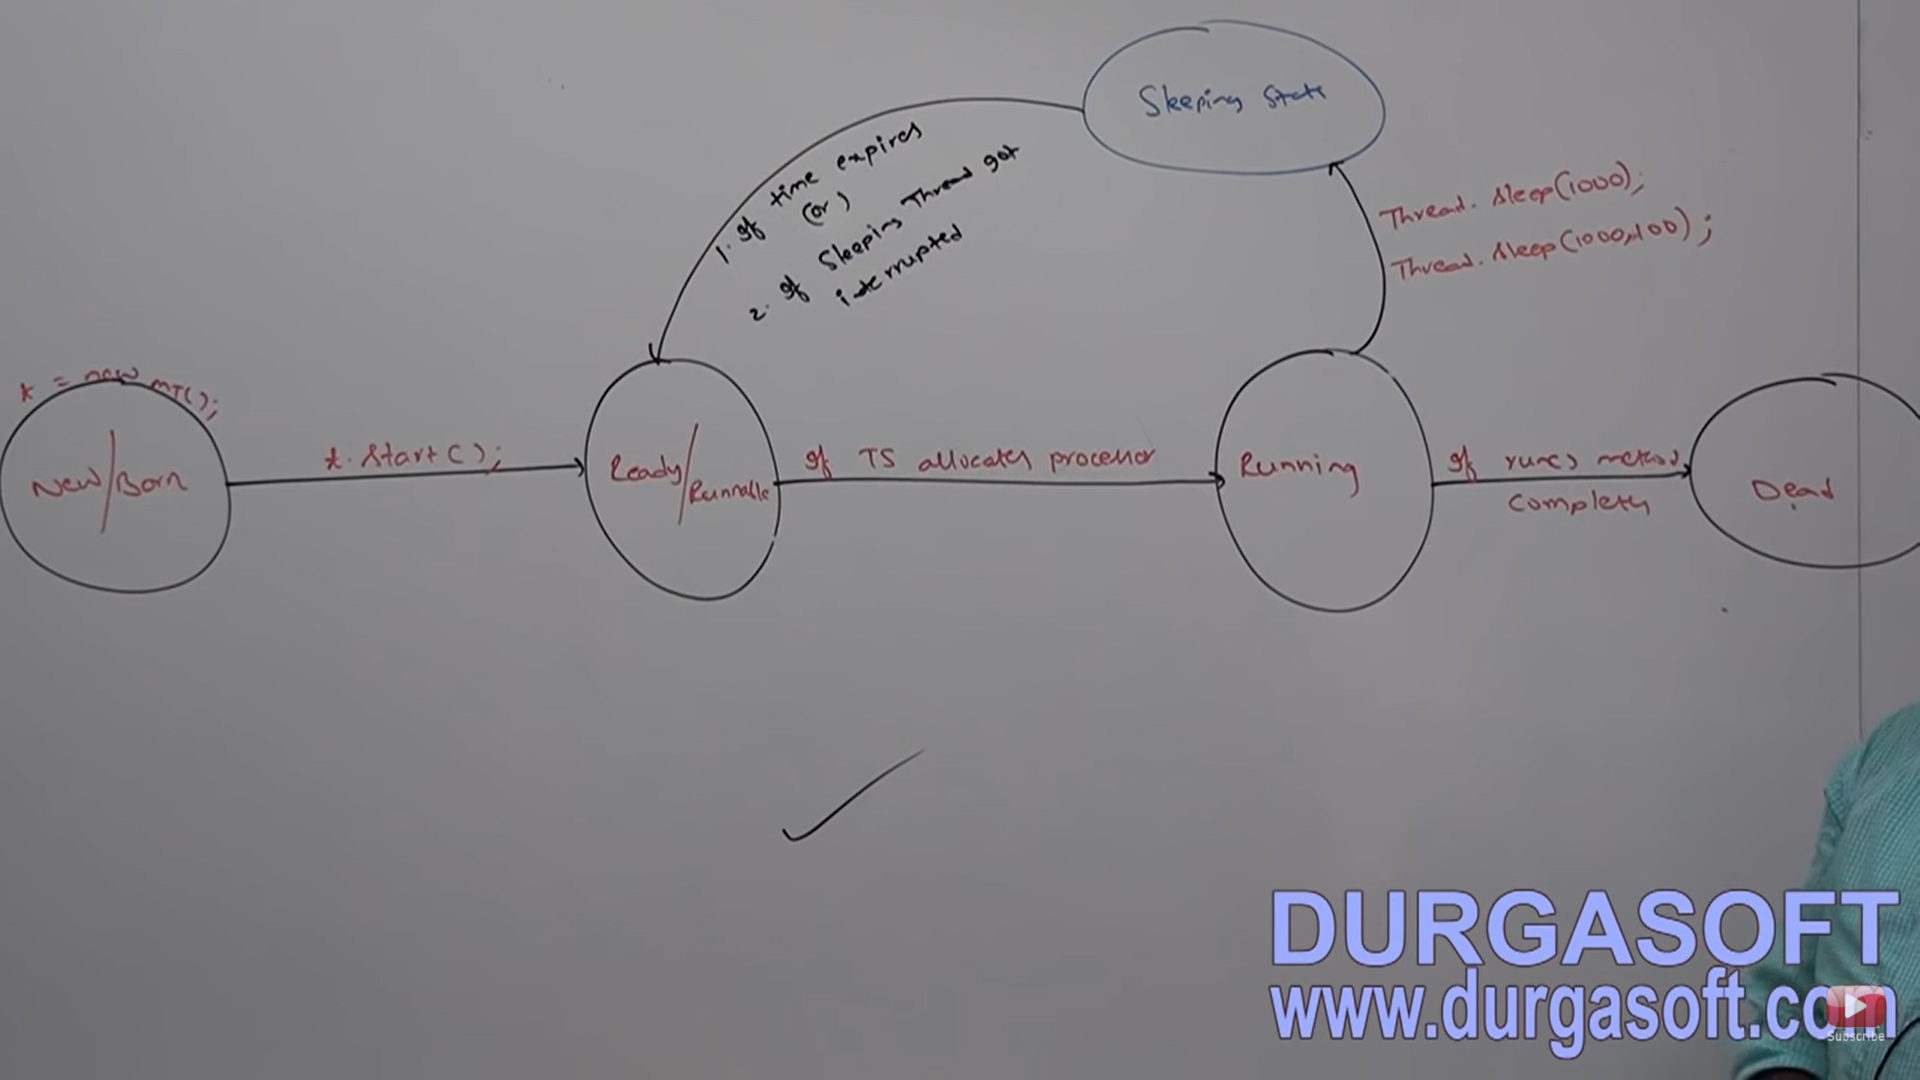 Sleeping State
1. If time expires
(or)
2. If Sleeping Thread got
interrupted
Thread.sleep(1000);
Thread.sleep(1000,100);
t = new MT();
New/Born
t.start();
Ready/Runnable
If TS allocates processor
Running
If run() method
completes
Dead
DURGASOFT
www.durgasoft.com
Subscribe